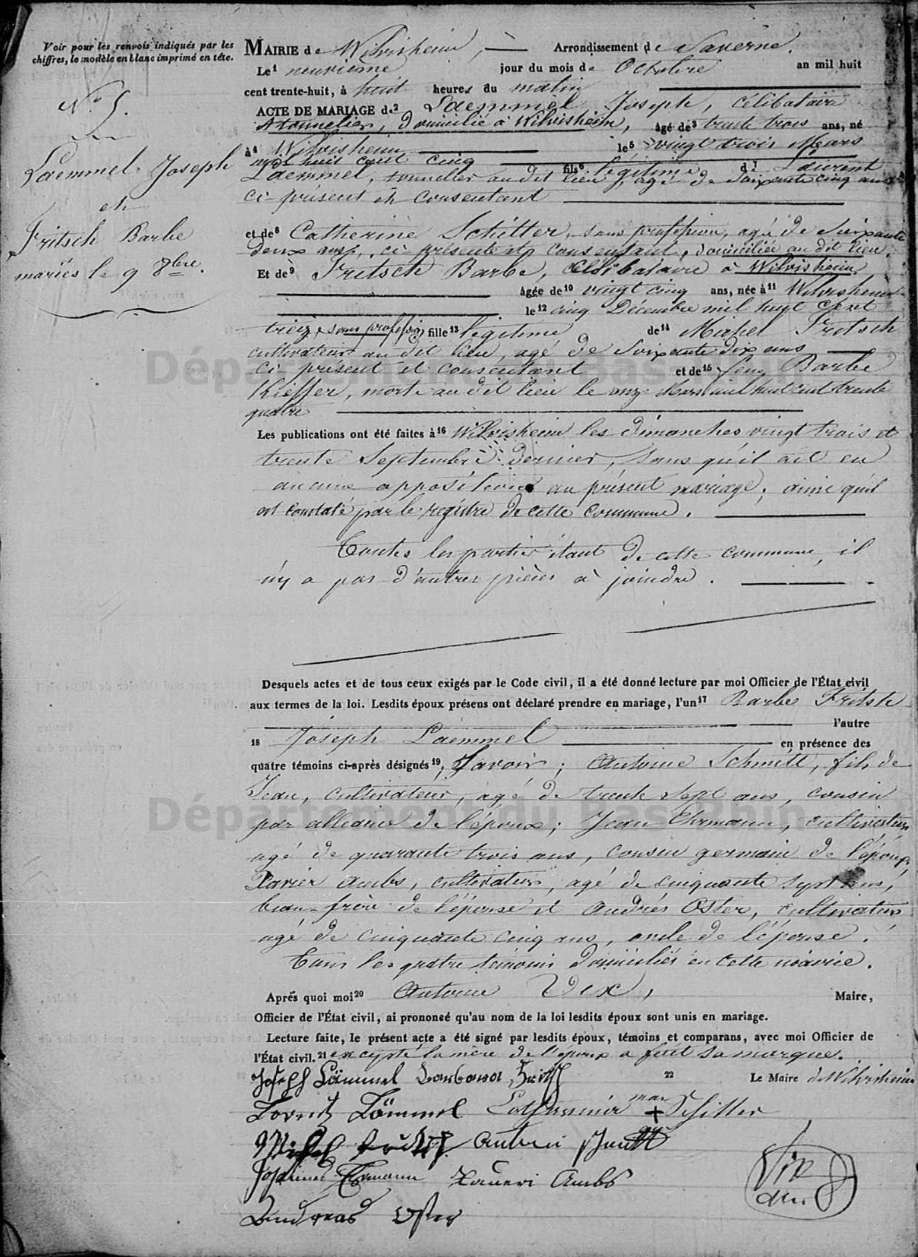 Voir pour les renvois indiqués par les
chiffres, le modèle en blanc imprimé en tête.
N° 5.
Laemmel Joseph
et
Fritsch Barbe
mariés le 9 8bre.
MAIRIE de Wilvisheim, Arrondissement de Saverne.
Le1 neuvième jour du mois de Octobre an mil huit
cent trente-huit, à huit heures du matin
ACTE DE MARIAGE de2 Laemmel Joseph, célibataire
tonnelier, domicilié à Wilvisheim, âgé de3 trente trois ans, né
à4 Wilvisheim le5 vingt trois Mars
mil huit cent cinq fils6 légitime d7 Laurent
Laemmel, tonnelier au dit lieu, agé de soixante cinq ans
ci présent et consentant
et de8 Catherine Schitter, sans profession, agé de soixante
deux ans, ci présente et consentant, domiciliée au dit lieu.
Et de9 Fritsch Barbe, célibataire à Wilvisheim
âgée de10 vingt cinq ans, née à11 Wilvisheim
le12 cinq Décembre mil huit cent
treize, sans profession fille13 légitime de14 Michel Fritsch
cultivateur au dit lieu, agé de soixante dix ans
ci présent et consentant et de15 feue Barbe
Kieffer, morte au dit lieu le onze Mars mil huit cent trente
quatre
Les publications ont été faites à16 Wilvisheim les dimanches vingt trois et
trente Septembre dernier, sans qu'il ait eu
aucune opposition au présent mariage, ainsi qu'il
est constaté par le registre de cette commune.
Toutes les parties étant de cette commune, il
n'y a pas d'autres pièces à joindre.
Desquels actes et de tous ceux exigés par le Code civil, il a été donné lecture par moi Officier de l'État civil
aux termes de la loi. Lesdits époux présens ont déclaré prendre en mariage, l'un17 Barbe Fritsch
l'autre
18 Joseph Laemmel en présence des
quatre témoins ci-après désignés19, Savoir; Antoine Schmitt, fils de
Jean, cultivateur, agé de trente sept ans, cousin
par alliance de l'époux; Jean Ehrmann, cultivateur
agé de quarante trois ans, cousin germain de l'époux,
Xavier Ambs, cultivateur, agé de cinquante sept ans,
beau-frère de l'épouse et Andrés Oster, cultivateur
agé de cinquante cinq ans, oncle de l'épouse.
Tous les quatre temoins domiciliés en cette mairie.
Après quoi moi20 Antoine Vix, Maire,
Officier de l'État civil, ai prononcé qu'au nom de la loi lesdits époux sont unis en mariage.
Lecture faite, le présent acte a été signé par lesdits époux, témoins et comparans, avec moi Officier de
l'État civil.21 excepté la mère de l'époux a fait sa marque.
22 Le Maire de Wilvisheim
Joseph Lämmel Barbara Fritsch
Lorentz Lämmel Catharina + Schitter
Michel Fritsch Antoni Schmitt
Johannes Ehrmann Xaveri Ambs
Andreas Oster
Vix